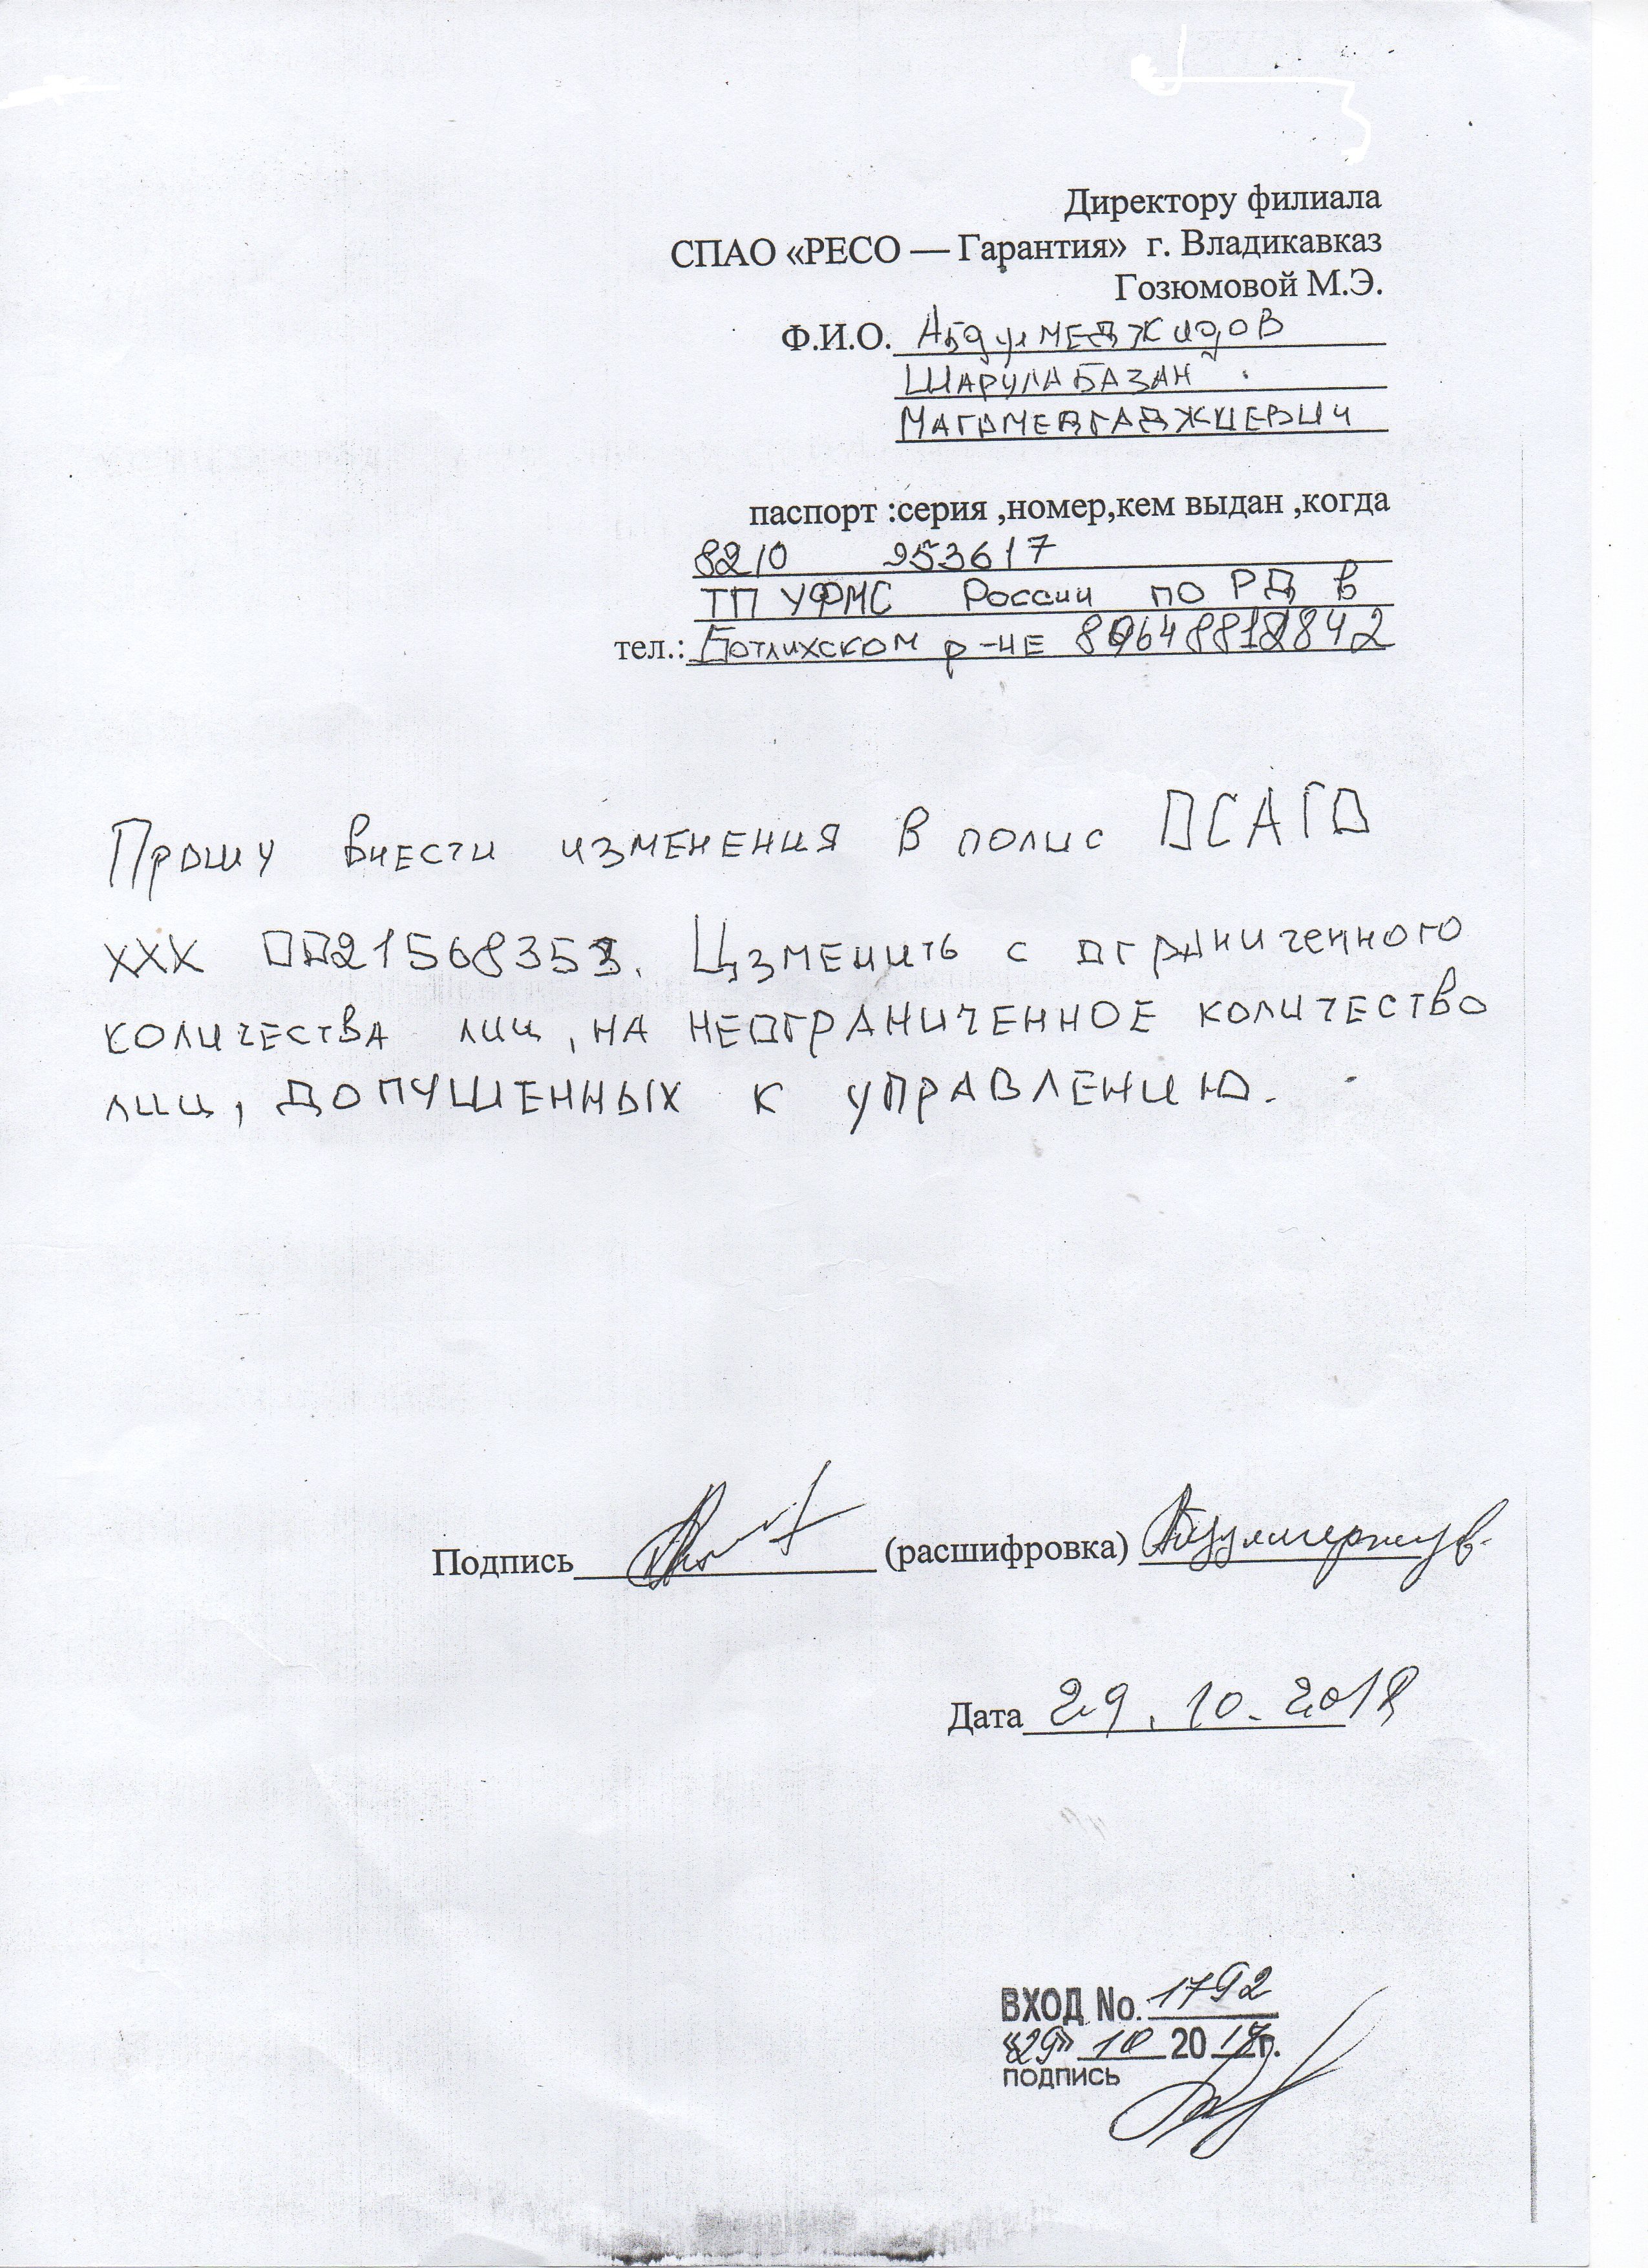 Директору филиала
СПАО «РЕСО — Гарантия» г. Владикавказ
Гозюмовой М.Э.
Ф.И.О. Абдулмеджидов
Шарулабазан
Магомедгаджиевич
паспорт :серия ,номер,кем выдан ,когда
8210 953617
ТП УФМС России по РД в
тел.: Ботлихском р-не
Прошу внести изменения в полис ОСАГО
ХХХ Изменить с ограниченного
количества лиц, на неограниченное количество
лиц, допушенных к управлению.
Подпись (расшифровка) Абдулмеджидов
Дата 29.10.2018
ВХОД No. 1792
«29» 10 2018г.
подпись